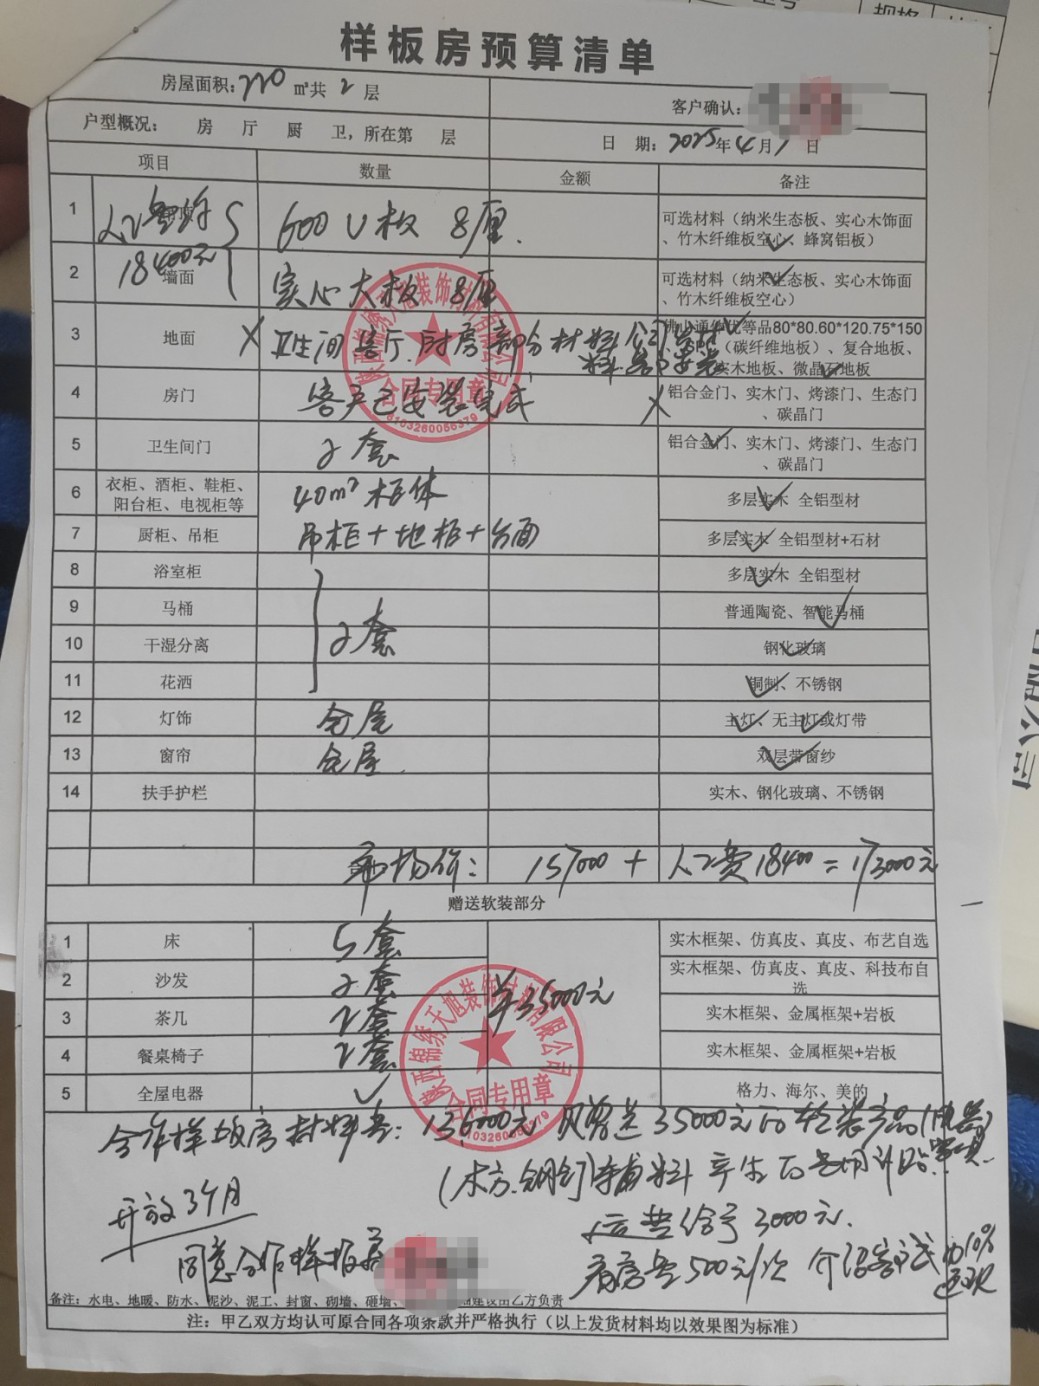 样板房预算清单
房屋面积: 220 ㎡共 2 层
客户确认:
户型概况: 房 厅 厨 卫,所在第 层
日 期: 2025年4月1日
项目 数量 金额 备注
1 600 U板 8厘. 可选材料(纳米生态板、实心木饰面、竹木纤维板空心、蜂窝铝板)
18400元
2 墙面 实心大板 8厘 可选材料(纳米生态板、实心木饰面、竹木纤维板空心)
3 地面 卫生间 客厅.厨房部分材料公司出材料 80*80.60*120.75*150 (碳纤维地板)、复合地板、实木地板、微晶石地板
4 房门 客户已安装完成 铝合金门、实木门、烤漆门、生态门、碳晶门
5 卫生间门 2套 铝合金门、实木门、烤漆门、生态门、碳晶门
6 衣柜、酒柜、鞋柜、阳台柜、电视柜等 40m² 柜体 多层实木 全铝型材
7 厨柜、吊柜 吊柜+地柜+台面 多层实木 全铝型材+石材
8 浴室柜 多层实木 全铝型材
9 马桶 2套 普通陶瓷、智能马桶
10 干湿分离 钢化玻璃
11 花洒 铜制、不锈钢
12 灯饰 全屋 主灯、无主灯或灯带
13 窗帘 全屋. 双层带窗纱
14 扶手护栏 实木、钢化玻璃、不锈钢
市场价: 157000 + 人工费18400 = 173000元
赠送软装部分
1 床 5套 实木框架、仿真皮、真皮、布艺自选
2 沙发 2套 35000元 实木框架、仿真皮、真皮、科技布自选
3 茶几 2套 实木框架、金属框架+岩板
4 餐桌椅子 2套 实木框架、金属框架+岩板
5 全屋电器 格力、海尔、美的
陕西锦绣天旭装饰材料有限公司
合同专用章
6103260056379
合作样板房材料卖: 136000元 送35000元的软装产品(电器)
(木方.钢钉)等辅料产生的费用
开放3个月
运费给予3000元.
同意合作样板房
看房是500元/次 介绍客户成 10%返现
备注: 水电、地暖、防水、泥沙、泥工、封窗、砌墙、砸墙、 建设由乙方负责
注: 甲乙双方均认可原合同各项条款并严格执行(以上发货材料均以效果图为标准)